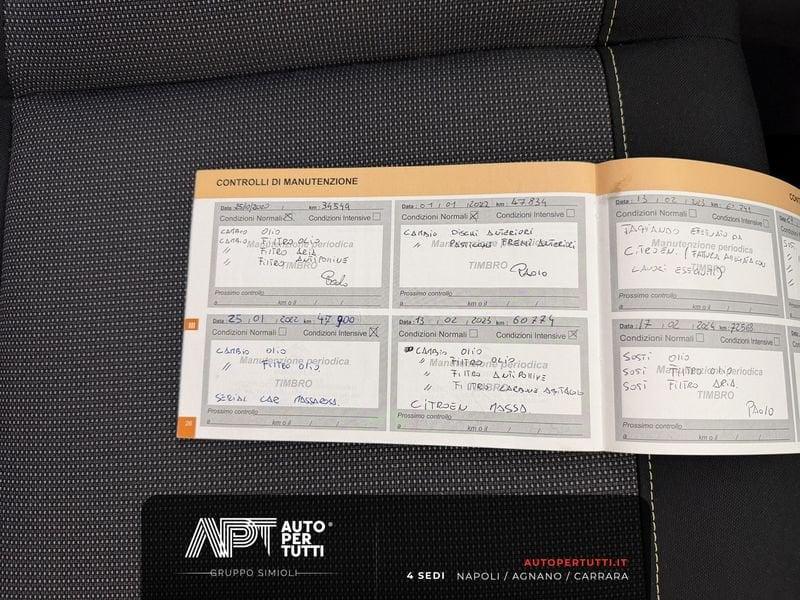 CONTROLLI DI MANUTENZIONE
Data: 25/10/2020 km: 34549
Condizioni Normali Condizioni Intensive
CAMBIO OLIO
CAMBIO FILTRO OLIO
" FILTRO ARIA
" FILTRO ANTIPOLLINE
Manutenzione periodica
TIMBRO
Paolo
Prossimo controllo
a km o il / /
Data: 01 / 01 / 2022 km: 47834
Condizioni Normali Condizioni Intensive
CAMBIO DISCHI ANTERIORI
" PASTICCHE FRENI ANTERIORI
Manutenzione periodica
TIMBRO
PAOLO
Prossimo controllo
a km o il / /
Data: 13 / 02 / 2023 km: 60774
Condizioni Normali Condizioni Intensive
TAGLIANDO
Manutenzione periodica
CITROEN / FATTURA
TIMBRO
LAVORI ESEGUITI)
Prossimo controllo
a km o il / /
Data: 25 / 01 / 2022 km: 47900
Condizioni Normali Condizioni Intensive
CAMBIO OLIO
" FILTRO OLIO
Manutenzione periodica
TIMBRO
SERIAL CAR MASSAROSA
Prossimo controllo
a km o il / /
Data: 13 / 02 / 2023 km: 60774
Condizioni Normali Condizioni Intensive
CAMBIO OLIO
" FILTRO OLIO
" FILTRO ANTIPOLLINE
" FILTRO CARBONE
Manutenzione periodica
TIMBRO
CITROEN MASSA
Prossimo controllo
a km o il / /
Data: 17 / 02 / 2024 km: 72563
Condizioni Normali Condizioni Intensive
SOSTI OLIO
SOSTI FILTRO OLIO
SOSTI FILTRO ARIA
Manutenzione periodica
TIMBRO
PAOLO
Prossimo controllo
a km o il / /
III
26
APT AUTO PER TUTTI®
GRUPPO SIMIOLI
AUTOPERTUTTI.IT
4 SEDI NAPOLI / AGNANO / CARRARA